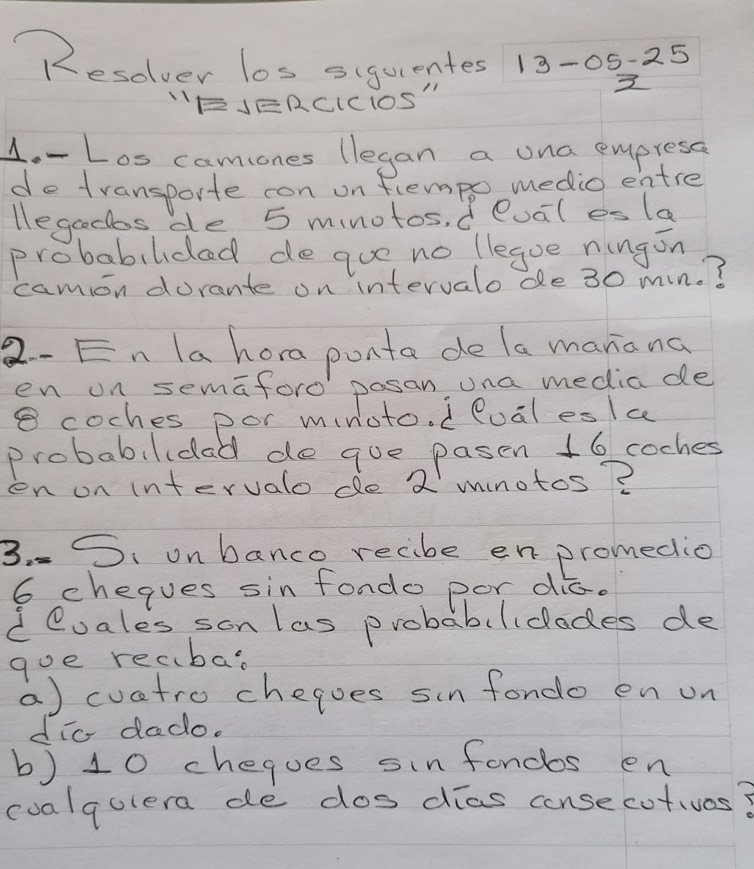 Resolver los siguientes 13-05-25
"EJERCICIOS" 2
1.- Los camiones llegan a una empresa
de transporte con un tiempo medio entre
llegadas de 5 minutos.¿Cuál es la
probabilidad de que no llegue ningún
camión durante un intervalo de 30 min.?
2.- En la hora punta de la mañana
en un semáforo pasan una media de
8 coches por minuto.¿Cuál es la
probabilidad de que pasen 16 coches
en un intervalo de 2 minutos?
3.- Si un banco recibe en promedio
6 cheques sin fondo por día.
¿Cuales son las probabilidades de
que reciba:
a) cuatro cheques sin fondo en un
día dado.
b) 10 cheques sin fondos en
cualquiera de dos días consecutivos?